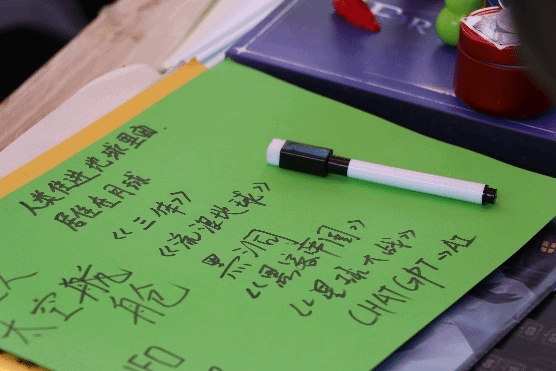 人类住进地球里面
居住在月球
《三体》
《流浪地球》
黑洞
《星球大战》
CHATGPT→AI
太空舱
UFO